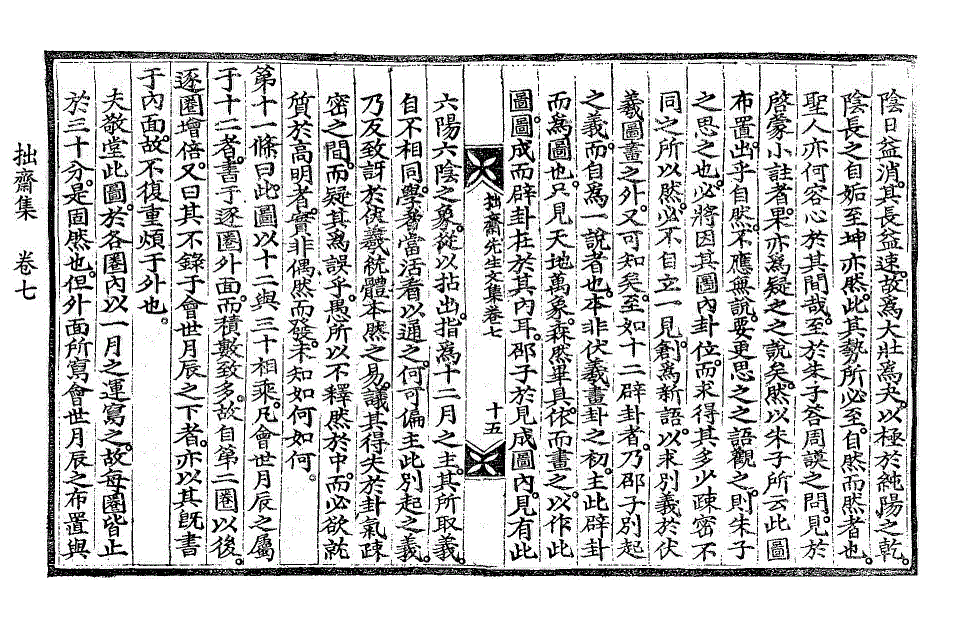 陰日益消。其長益速。故爲大壯爲夬。以極於純陽之乾。
陰長之自姤至坤亦然。此其勢所必至。自然而然者也。
聖人亦何容心於其間哉。至於朱子答周謨之問。見於
啓蒙小註者。果亦爲疑之之說矣。然以朱子所云此圖
布置出乎自然。不應無說。要更思之之語觀之。則朱子
之思之也。必將因其圖內卦位。而求得其多少疎密不
同之所以然。必不自立一見。創爲新語。以求別義於伏
羲圖畫之外。又可知矣。至如十二辟卦者。乃邵子別起
之義。而自爲一說者也。本非伏羲畫卦之初。主此辟卦
而爲圖也。只見天地萬象森然畢具。依而畫之。以作此
圖。圖成而辟卦在於其內耳。邵子於見成圖內。見有此
拙齋先生文集卷七 十五
六陽六陰之象。從以拈出。指爲十二月之主。其所取義。
自不相同。學者當活看以通之。何可偏主此別起之義。
乃反致訝於伏羲統體本然之易。議其得失於卦氣疎
密之間。而疑其爲誤乎。愚所以不釋然於中。而必欲就
質於高明者。實非偶然而發。未知如何如何。
第十一條曰。此圖以十二與三十相乘。凡會世月辰之屬
于十二者。書于逐圈外面。而積數致多。故自第二圈以後。
逐圈增倍。又曰其不錄于會世月辰之下者。亦以其旣書
于內面。故不復重煩于外也。
夫敬堂此圖。於各圈內以一月之運寫之。故每圈皆止
於三十分。是固然也。但外面所寫會世月辰之布置。與
拙齋集 卷七